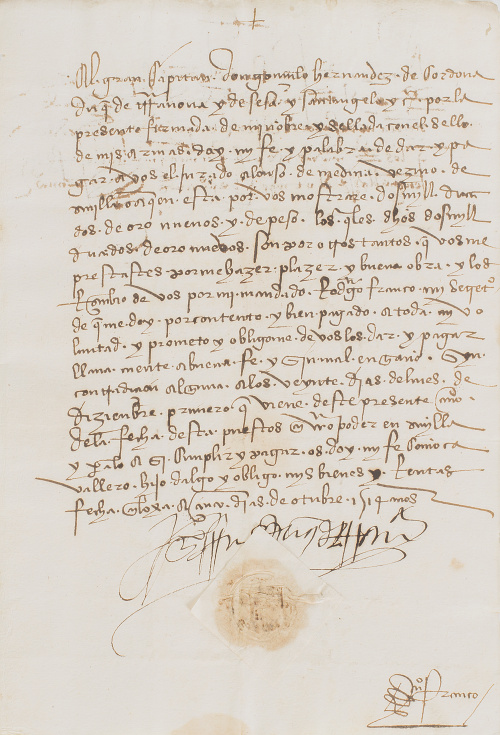 El gran Capitan don gonçalo hernandez de Cordoua
duq̃ de trranoua y de sesa y santangelo y c̃. por la
presente firmada de mi nōbre y sellada con el sello
de mis armas doy mi fe y palabra de dar y pa
gar a vos el jurado alonso de medina vezino de
seuilla o a quien esta por vos mostrare dos mill duca
dos de oro nueuos y de peso los q̃les dhos dos mill
ducados de oro nueuos son por otros tantos q̃ vos me
prestastes por me hazer plazer y buena obra y los
Resçibio de vos por mi mandado Rodrigo franco mi secret.º
de que me doy por contento y bien pagado a toda mi vo
luntad y prometo y obligome de vos los dar y pagar
llana mente a buena fe y sin mal engaño syn
contradiçion alguna a los veynte dias del mes de
diziembre primero q̃ viene deste presente año
de la fecha desta puestos en vr̃o poder en seuilla
y para lo asi Cunplir y pagar os doy mi fe Como ca
vallero hijo dalgo y obligo mis bienes y Rentas
fecha en loxa a dias de otubre 1514 años
franco